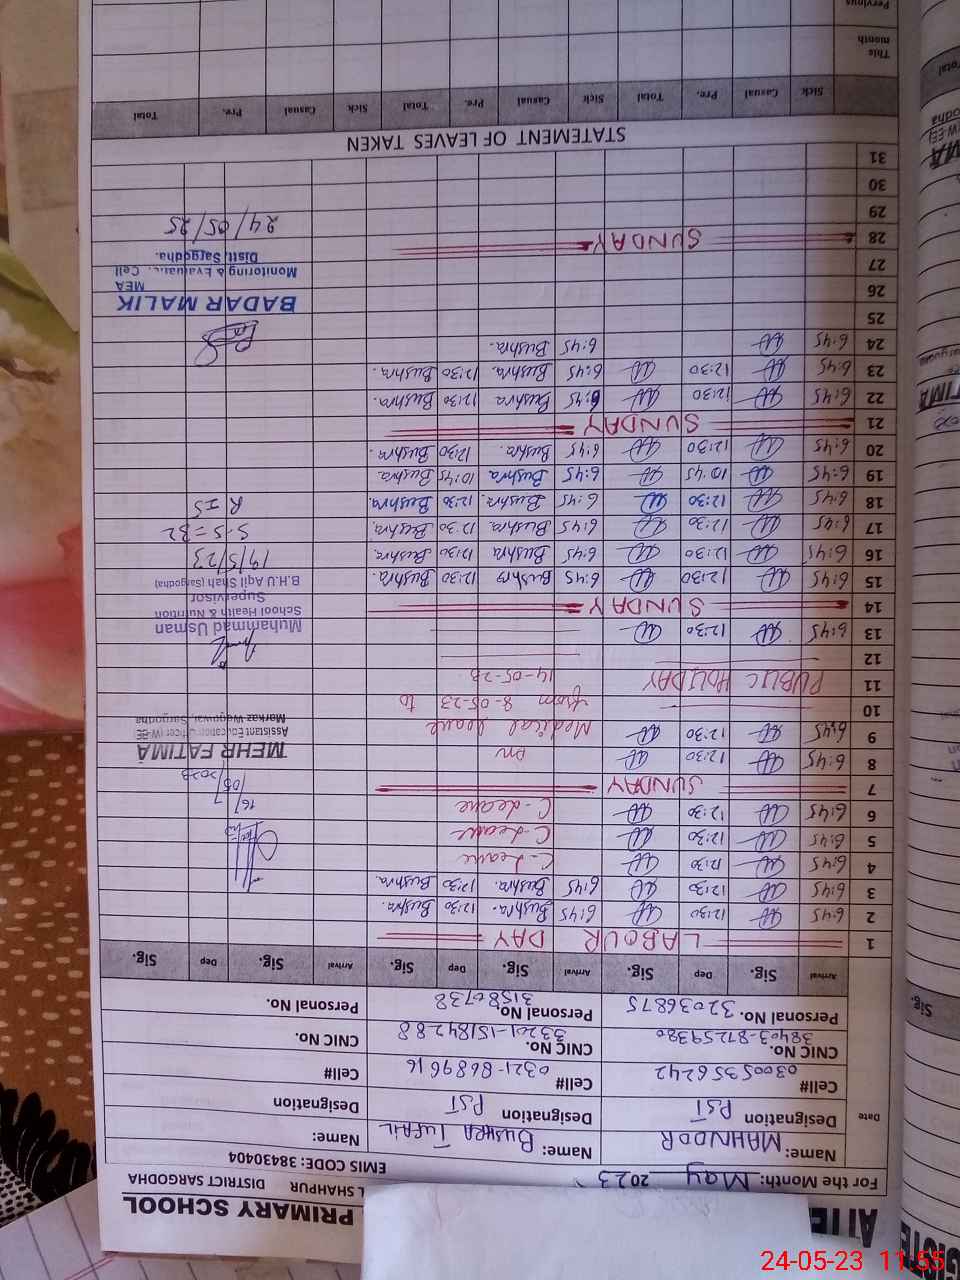 ATTE
GISTE
PRIMARY SCHOOL
L SHAHPUR DISTRICT SARGODHA
For the Month: May 2023
EMIS CODE: 38430404
Date
Name: MAHNOOR Name: BUSHRA TUFAIL Name:
Designation PST Designation PST Designation
Cell# 03005356242 Cell# 0321-8689616 Cell#
CNIC No. 38403-87259380 CNIC No. 33201-1518428 8 CNIC No.
Personal No. 32036875 Personal No. 31580738 Personal No.
Arrival Sig. Dep Sig. Arrival Sig. Dep Sig. Arrival Sig. Dep Sig.
1 LABOUR DAY
2 6:45 12:30 6:45 Bushra. 12:30 Bushra.
3 6:45 12:30 6:45 Bushra. 12:30 Bushra.
4 6:45 12:30 C-Leave
5 6:45 12:30 C-Leave
6 6:45 12:30 C-Leave
7 SUNDAY
8 6:45 12:30 on
9 6:45 12:30 Medical leave
10 from 8-05-23 to
11 PUBLIC HOLIDAY 14-05-23
12
13 6:45 12:30
14 SUNDAY
15 6:45 12:30 6:45 Bushra 12:30 Bushra.
16 6:45 12:30 6:45 Bushra 12:30 Bushra.
17 6:45 12:30 6:45 Bushra 12:30 Bushra.
18 6:45 12:30 6:45 Bushra. 12:30 Bushra.
19 6:45 10:45 6:45 Bushra 10:45 Bushra
20 6:45 12:30 6:45 Bushra. 12:30 Bushra.
21 SUNDAY
22 6:45 12:30 6:45 Bushra 12:30 Bushra.
23 6:45 12:30 6:45 Bushra. 12:30 Bushra.
24 6:45 6:45 Bushra.
25
26
27
28 SUNDAY
29
30
31
16/05/2023
MEHR FATIMA
Assistant Education Officer (W-EE)
Markaz Wegowal, Sargodha
Muhammad Usman
School Health & Nutrition
Supervisor
B.H.U Aqil Shah (Sargodha)
19/5/23
S.S=32
R=5
BADAR MALIK
MEA
Monitoring & Evaluati.. Cell
Distt. Sargodha.
24/05/25
STATEMENT OF LEAVES TAKEN
Sick Casual Pre. Total Sick Casual Pre. Total Sick Casual Pre. Total
This month
Pervious
Sig.
24-05-23 11:55